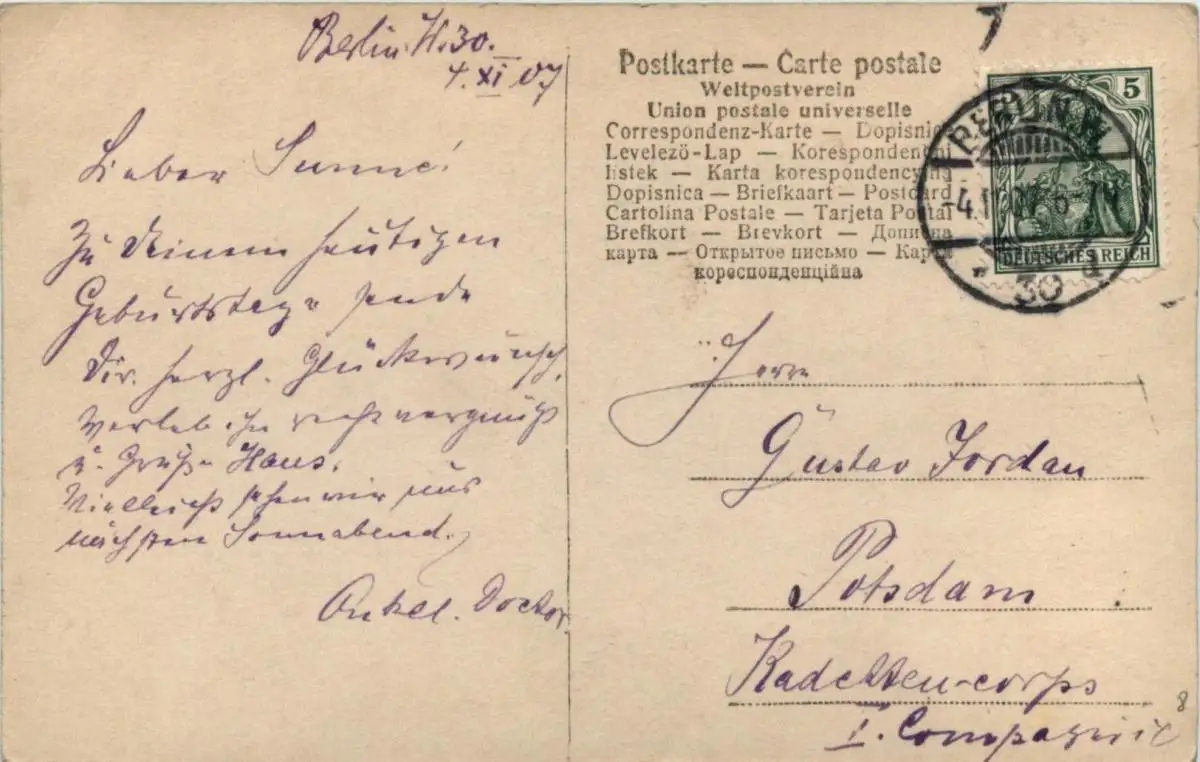 Berlin W. 30.
4. XI 07
Lieber
Zu Deinem heutigen
Geburtstage sende
Dir herzl. Glückwunsch,
verleb ihn recht vergnügt
u. grüße Hans.
Vielleicht sehen wir uns
nächsten Sonnabend.
Onkel. Doctor.
Postkarte — Carte postale
Weltpostverein
Union postale universelle
Correspondenz-Karte — Dopisnic
Levelező-Lap — Korespondenční
lístek — Karta korespondencyjna
Dopisnica — Briefkaart — Postcard
Cartolina Postale — Tarjeta Postal
Brefkort — Brevkort — Дописна
карта — Открытое письмо — Карта
кореспонденційна
5
DEUTSCHES REICH
BERLIN W
30 d
Herrn
Gustav Jordan
Potsdam.
Kadetten-corps
I. Compagnie
8